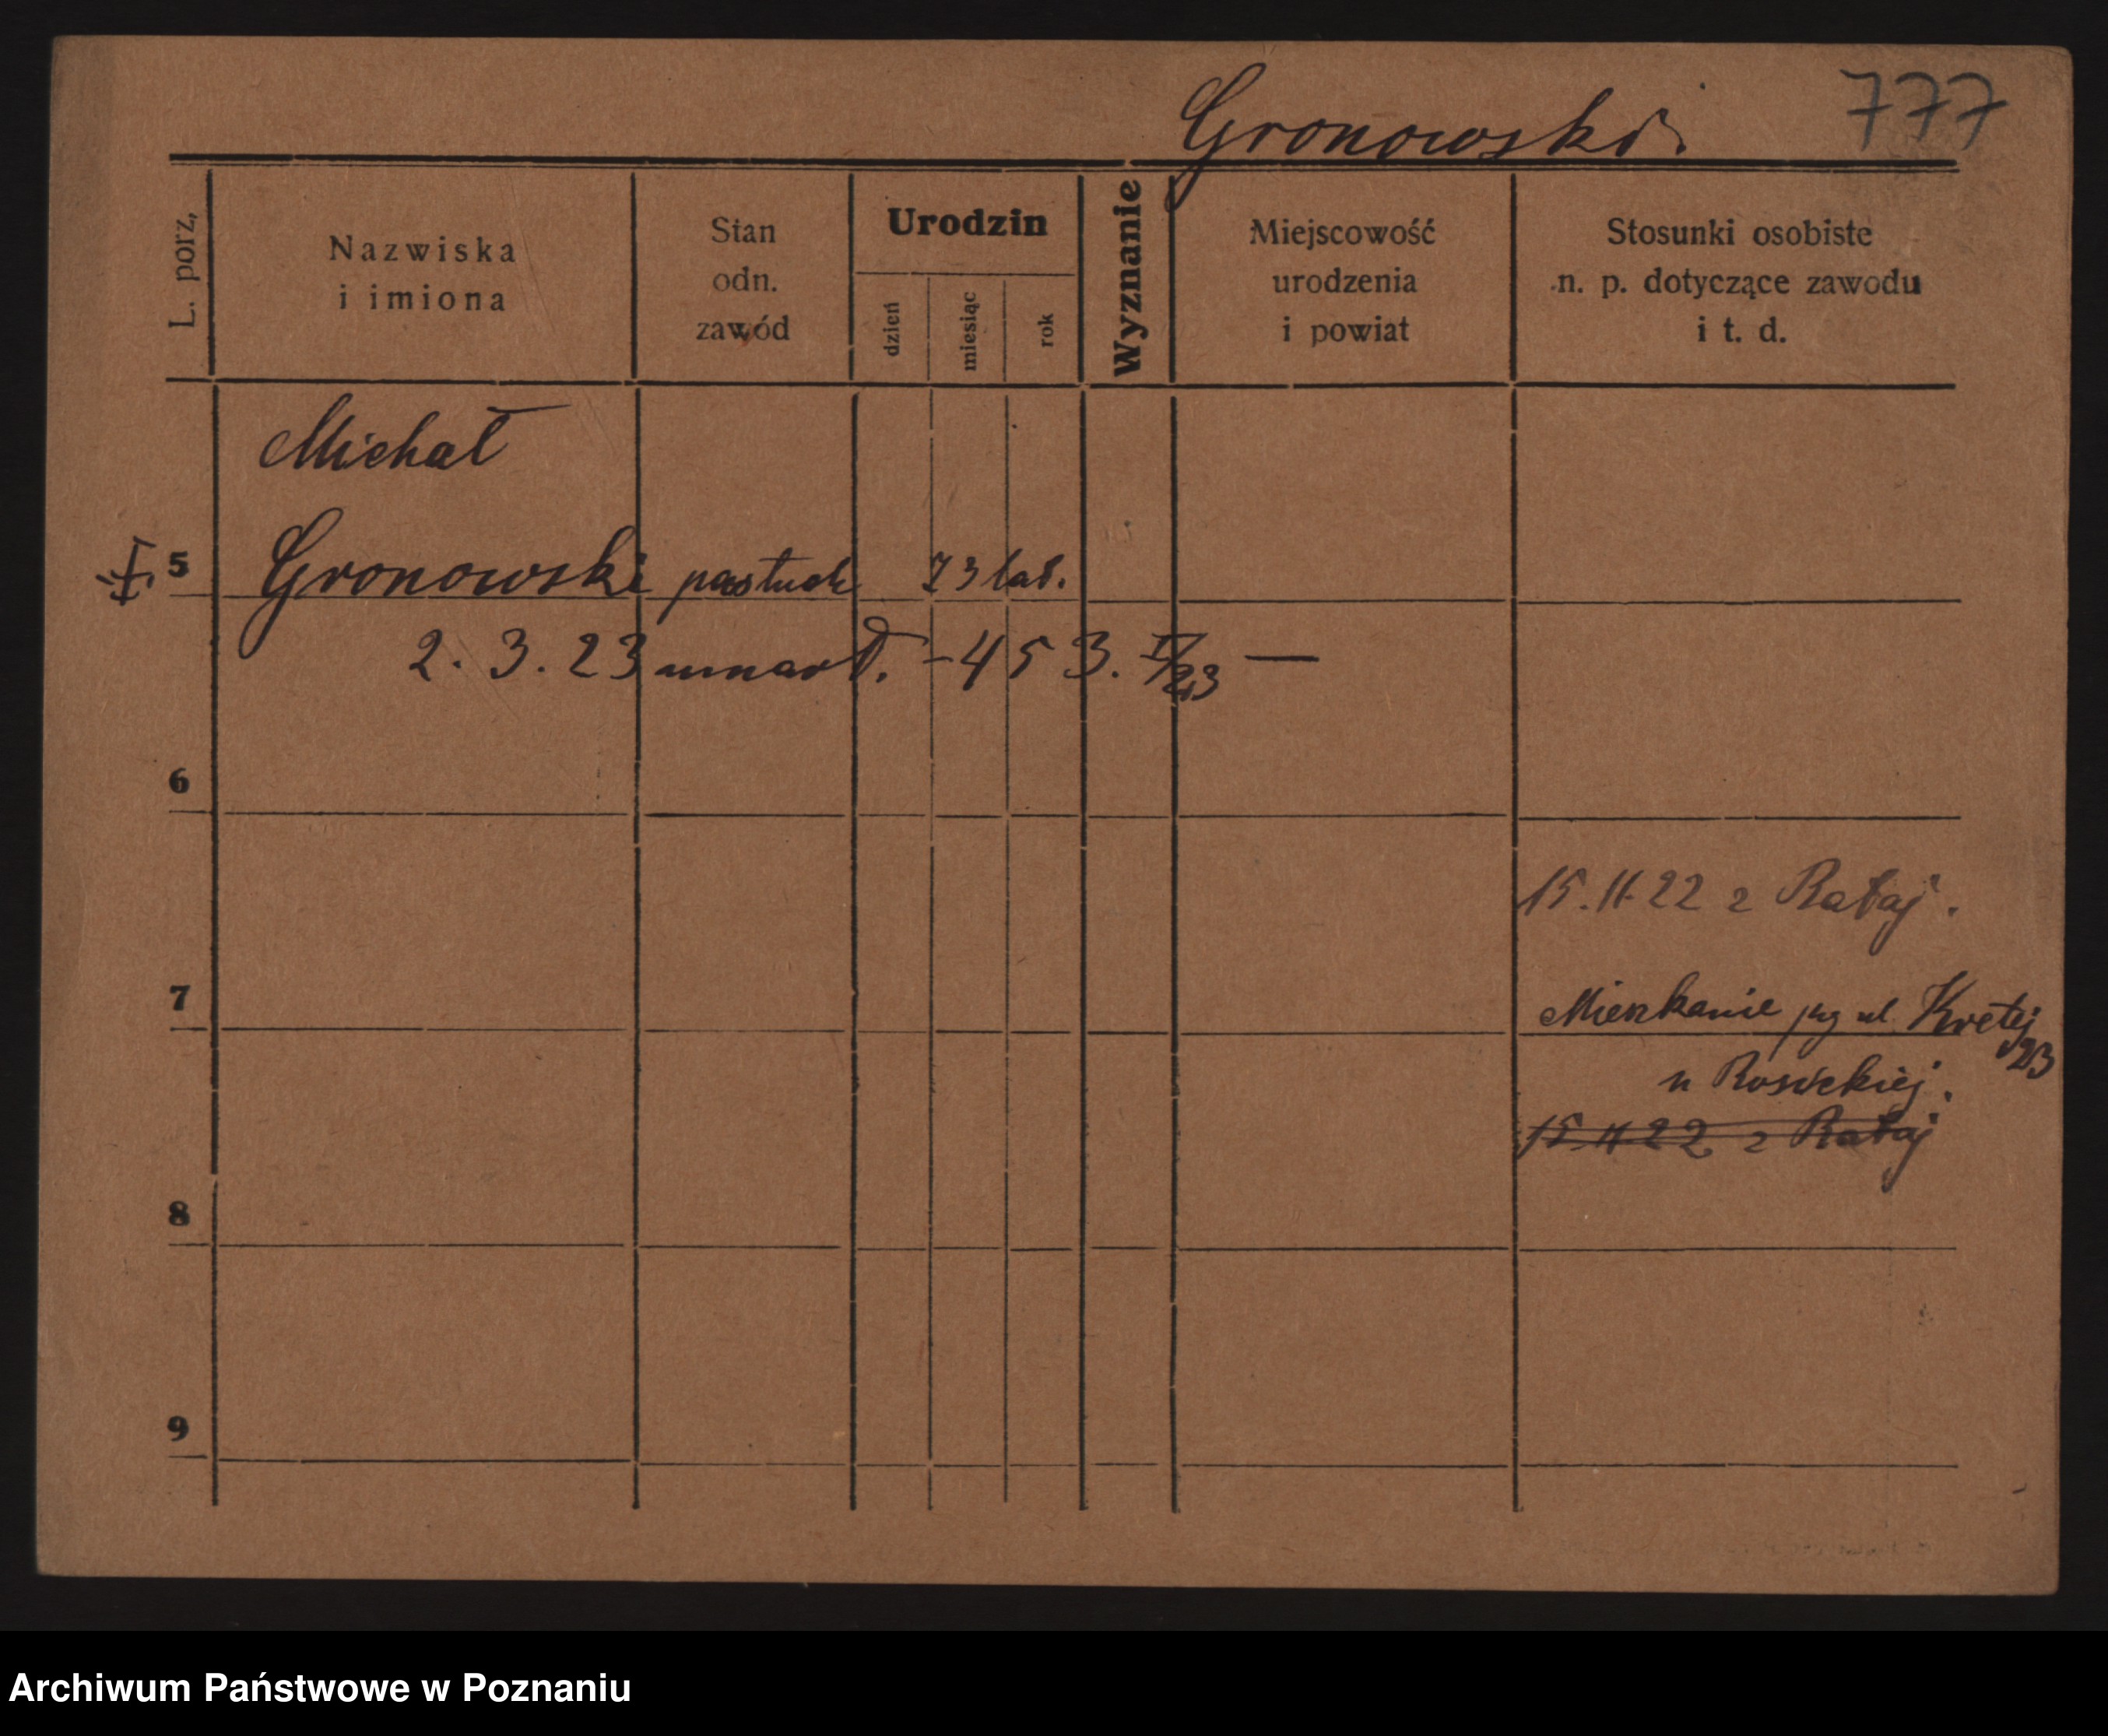 Gronowski. 777
L. porz,
Nazwiska
i imiona
Stan
odn.
zawód
Urodzin
dzień
miesiąc
rok
Wyznanie
Miejscowość
urodzenia
i powiat
Stosunki osobiste
n. p. dotyczące zawodu
i t. d.
Michał
5 Gronowski pastuch 73 lat.
2. 3. 23 umarł. - 453. I/23 —
6
15.11.22 z Rataj.
7 Mieszkanie ul. Kretej
23
u Rosickiej.
15.11.22 z Rataj
8
9
Archiwum Państwowe w Poznaniu